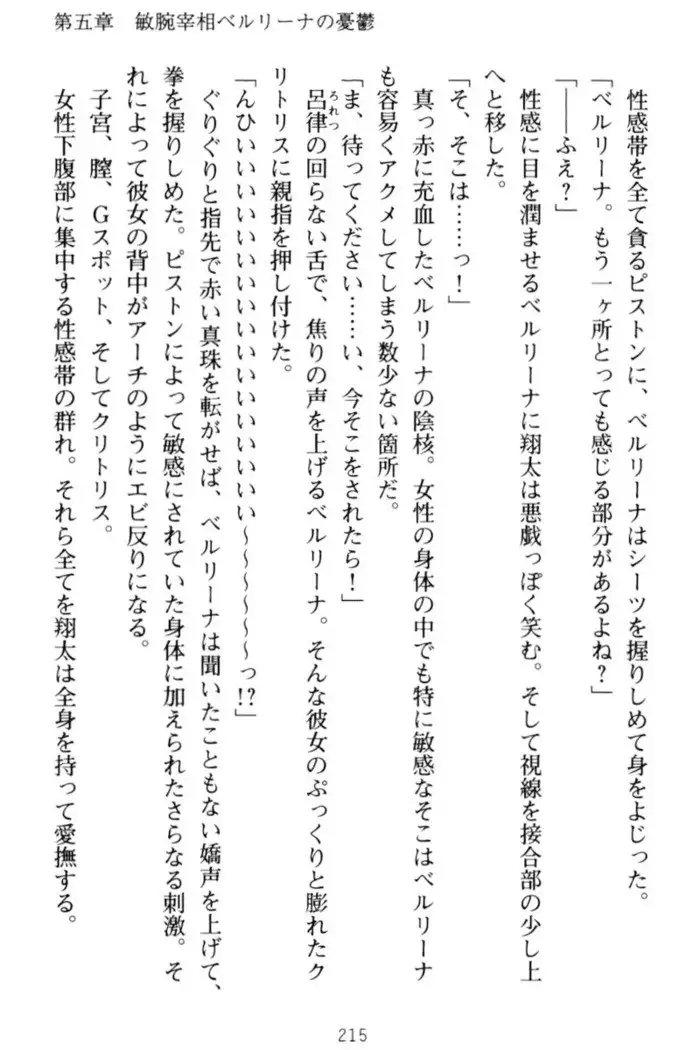 第五章　敏腕宰相ベルリーナの憂鬱
性感帯を全て貪るピストンに、ベルリーナはシーツを握りしめて身をよじった。
「ベルリーナ。もう一ヶ所とっても感じる部分があるよね？」
「――ふえ？」
性感に目を潤ませるベルリーナに翔太は悪戯っぽく笑む。そして視線を接合部の少し上
へと移した。
「そ、そこは……っ！」
真っ赤に充血したベルリーナの陰核。女性の身体の中でも特に敏感なそこはベルリーナ
も容易くアクメしてしまう数少ない箇所だ。
「ま、待ってください……い、今そこをされたら！」
呂律の回らない舌で、焦りの声を上げるベルリーナ。そんな彼女のぷっくりと膨れたク
ろれつ
リトリスに親指を押し付けた。
「んひいいいいいいいいいいいいいいいいい～～～～～～っ!?」
ぐりぐりと指先で赤い真珠を転がせば、ベルリーナは聞いたこともない嬌声を上げて、
拳を握りしめた。ピストンによって敏感にされていた身体に加えられたさらなる刺激。そ
れによって彼女の背中がアーチのようにエビ反りになる。
子宮、膣、Ｇスポット、そしてクリトリス。
女性下腹部に集中する性感帯の群れ。それら全てを翔太は全身を持って愛撫する。
215